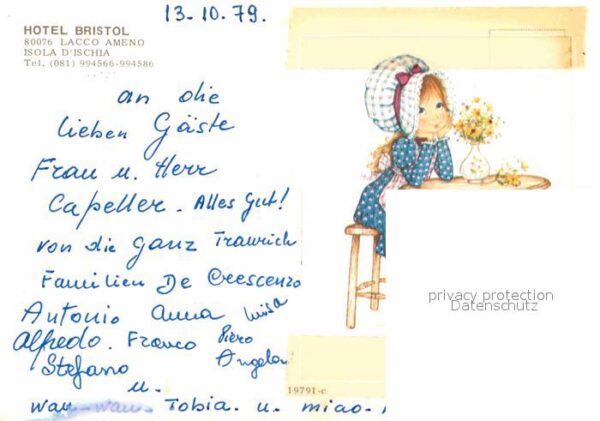 13.10.79.
HOTEL BRISTOL
80076 LACCO AMENO
ISOLA D'ISCHIA
Tel. (081) 994566-994586
an die
lieben Gäste
Frau u. Herr
Capeller. Alles Gut!
von die ganz Traurich
Familien De Crescenzo
Antonio Anna Luisa
Alfredo. Franco Piero
Stefano Angelo
u.
wau-wau. Tobia. u. miao.
19791-c
privacy protection
Datenschutz